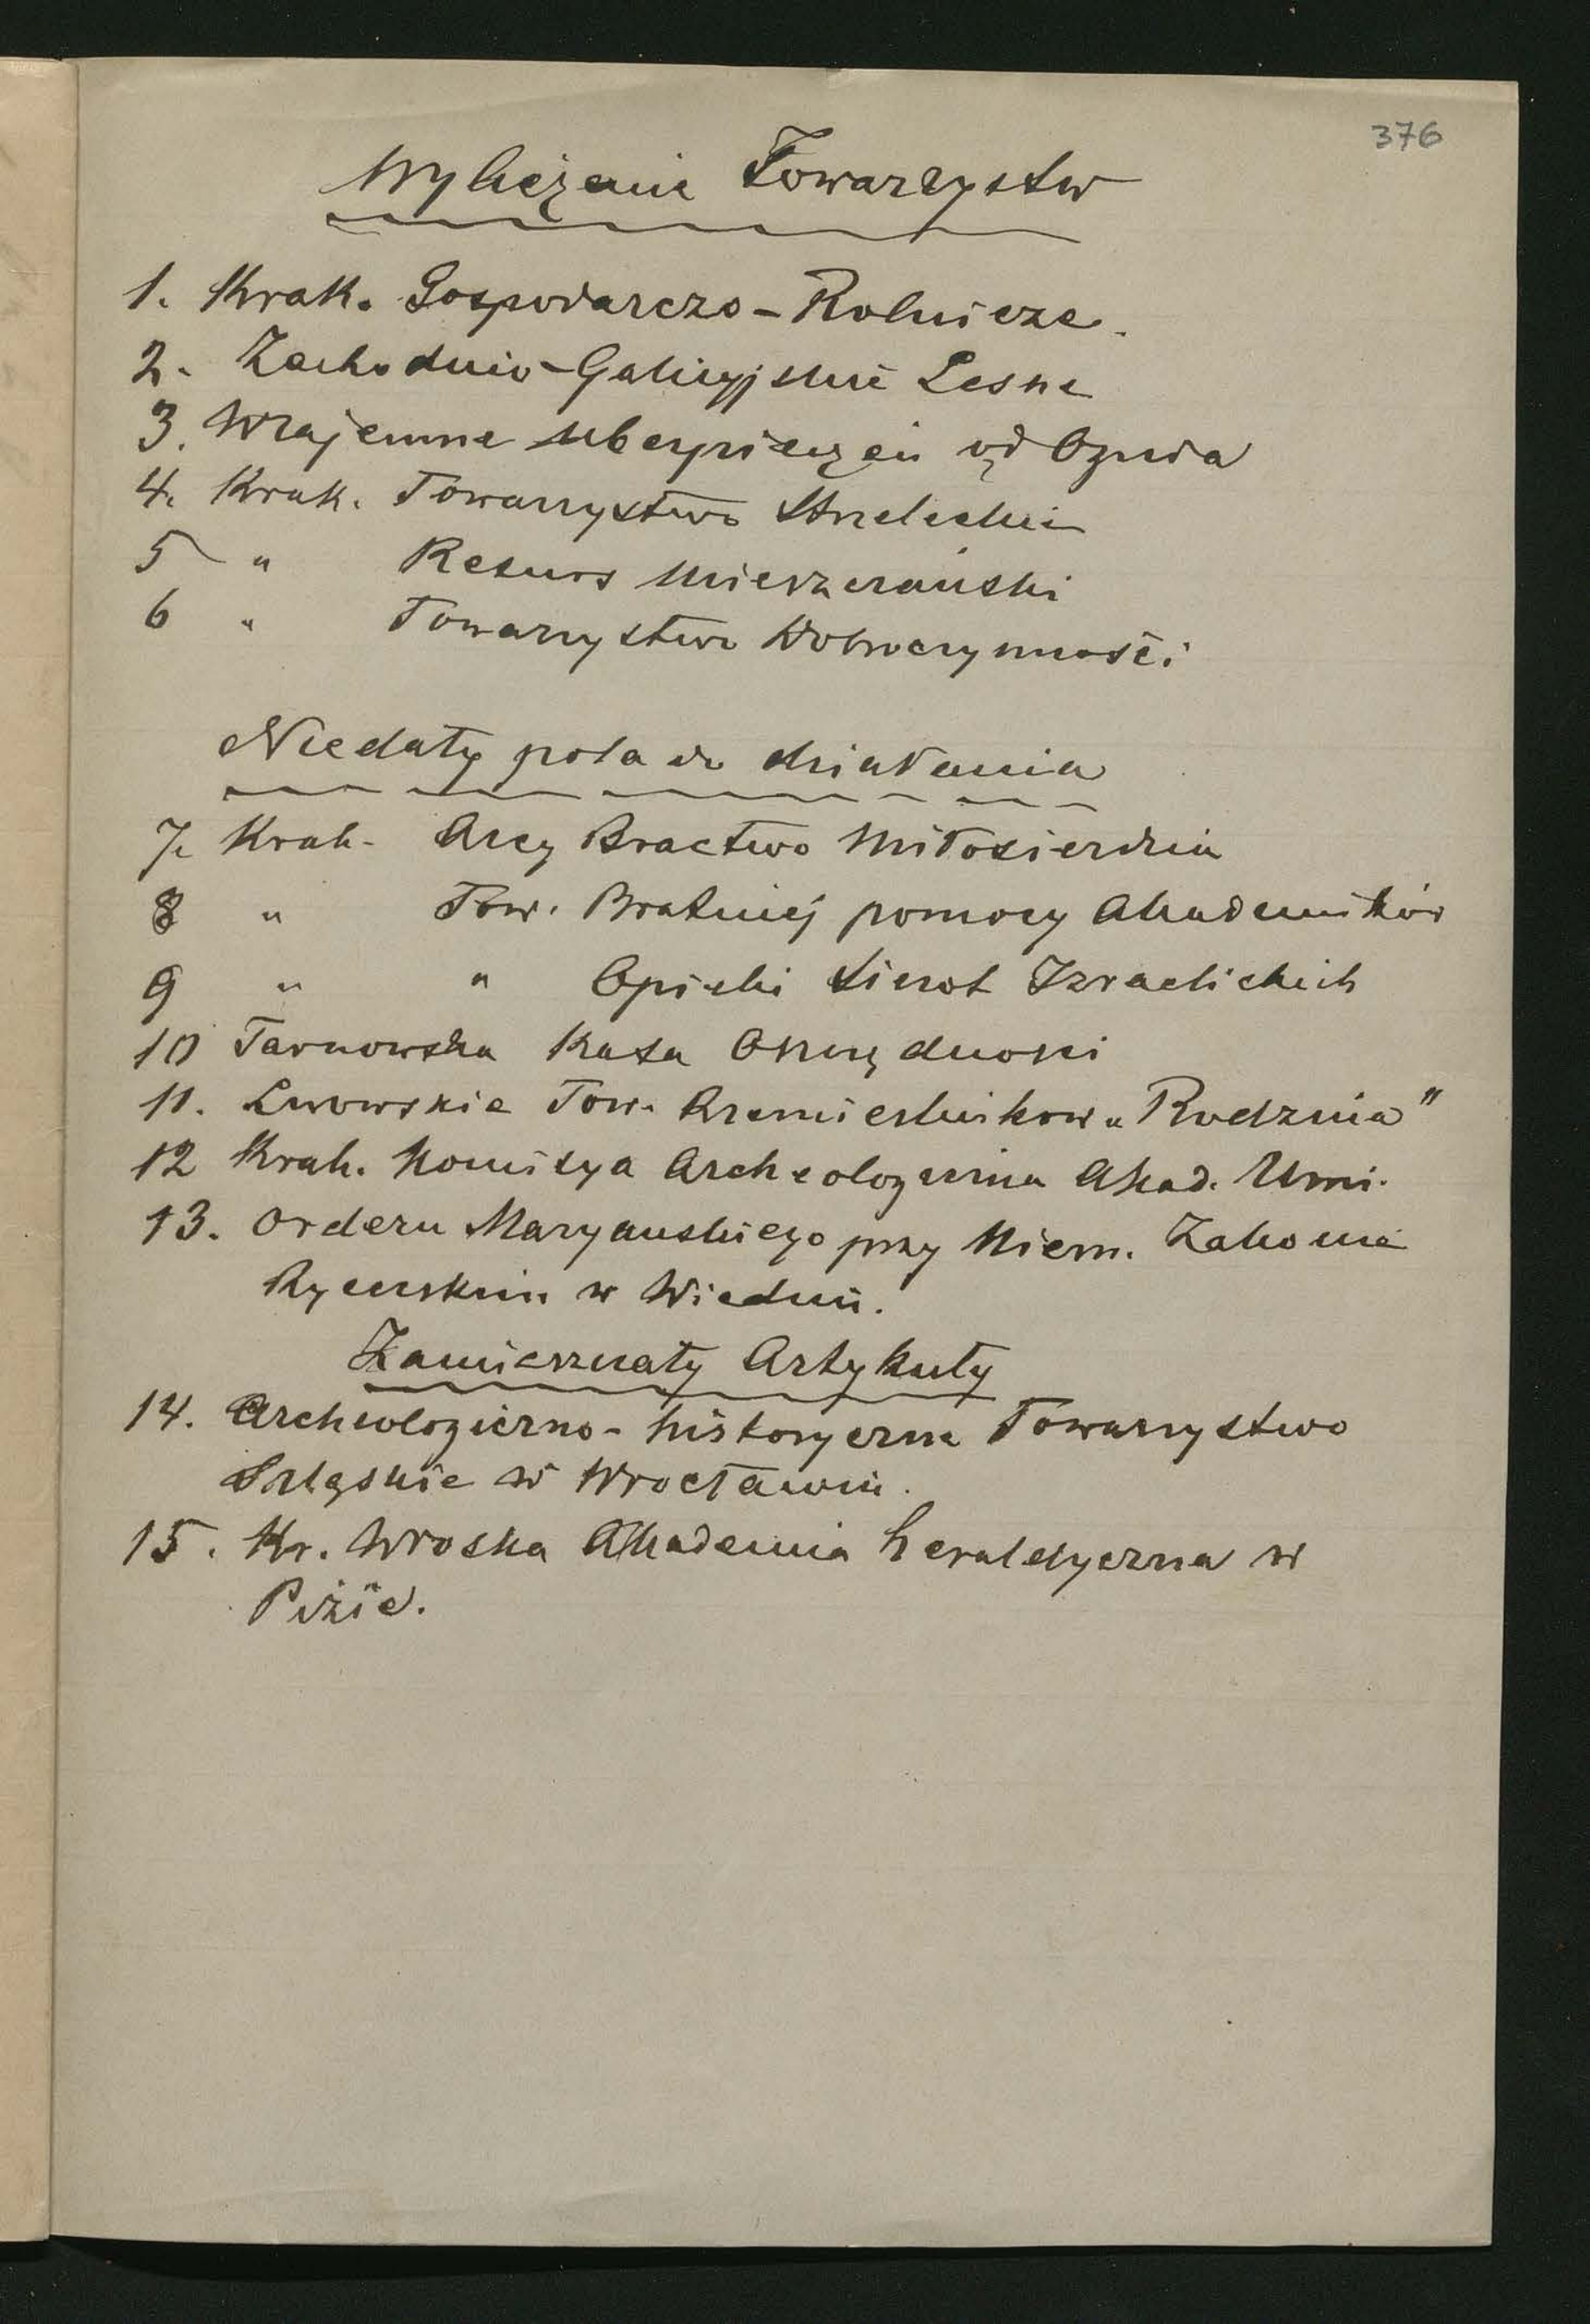 376
Wyliczenie Towarzystw
1. Krak. Gospodarczo-Rolnicze.
2. Zachodnio-Galicyjskie Lesne
3. Wzajemne Ubezpieczeń od Ognia
4. Krak. Towarzystwo Strzeleckie
5 " Resurs Mieszczański
6 " Towarzystwo Dobroczynności
Niedały pola do działania
7. Krak. Arcy Bractwo Miłosierdzia
8 " Tow. Bratniej pomocy Akademików
9 " " Opieki Sierot Izraelickich
10 Tarnowska Kasa Oszczędności
11. Lwowskie Tow. Rzemieslnikow „Rodzina"
12 Krak. Komisya Archeologiczna Akad. Umi.
13. Orderu Maryanskiego przy Niem. Zakonie
Rycerskim w Wiedniu.
Zamieszczały Artykuły
14. Archeologiczno-historyczne Towarzystwo
Szląskie w Wrocławiu.
15. Kr. Włoska Akademia heraldyczna w
Pizie.